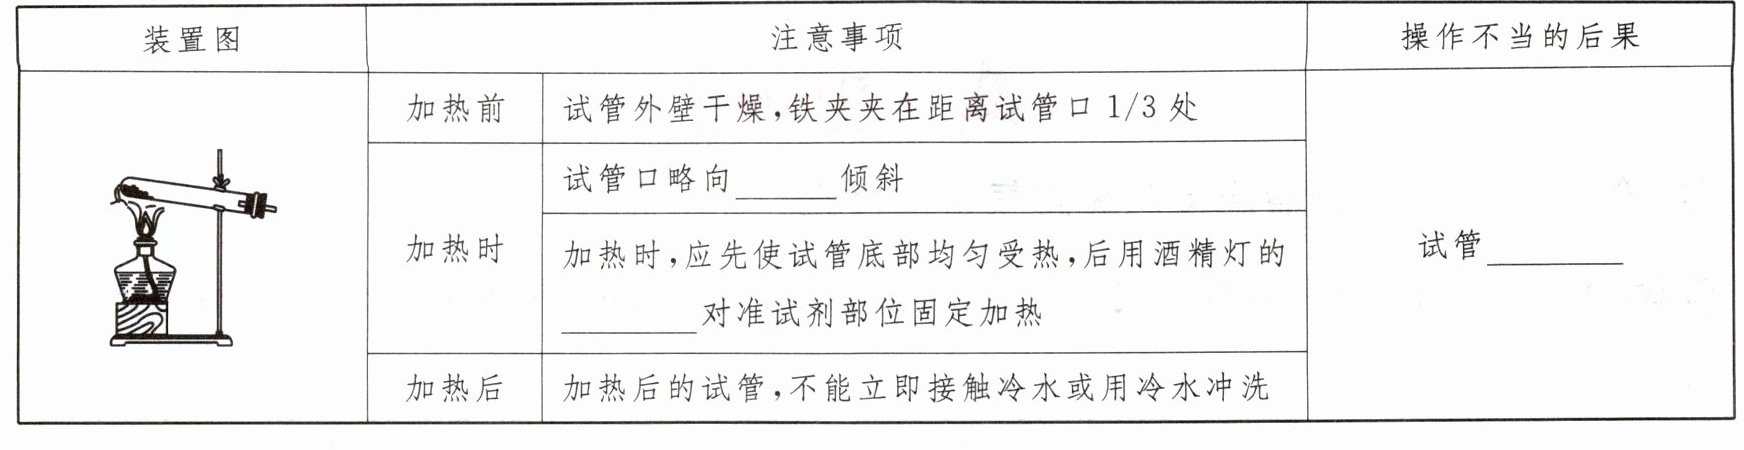 装置图
注意事项
操作不当的后果
加热前
试管外壁干燥,铁夹夹在距离试管口 1/3 处
加热时
试管口略向______倾斜
加热时,应先使试管底部均匀受热,后用酒精灯的
________对准试剂部位固定加热
试管________
加热后
加热后的试管,不能立即接触冷水或用冷水冲洗